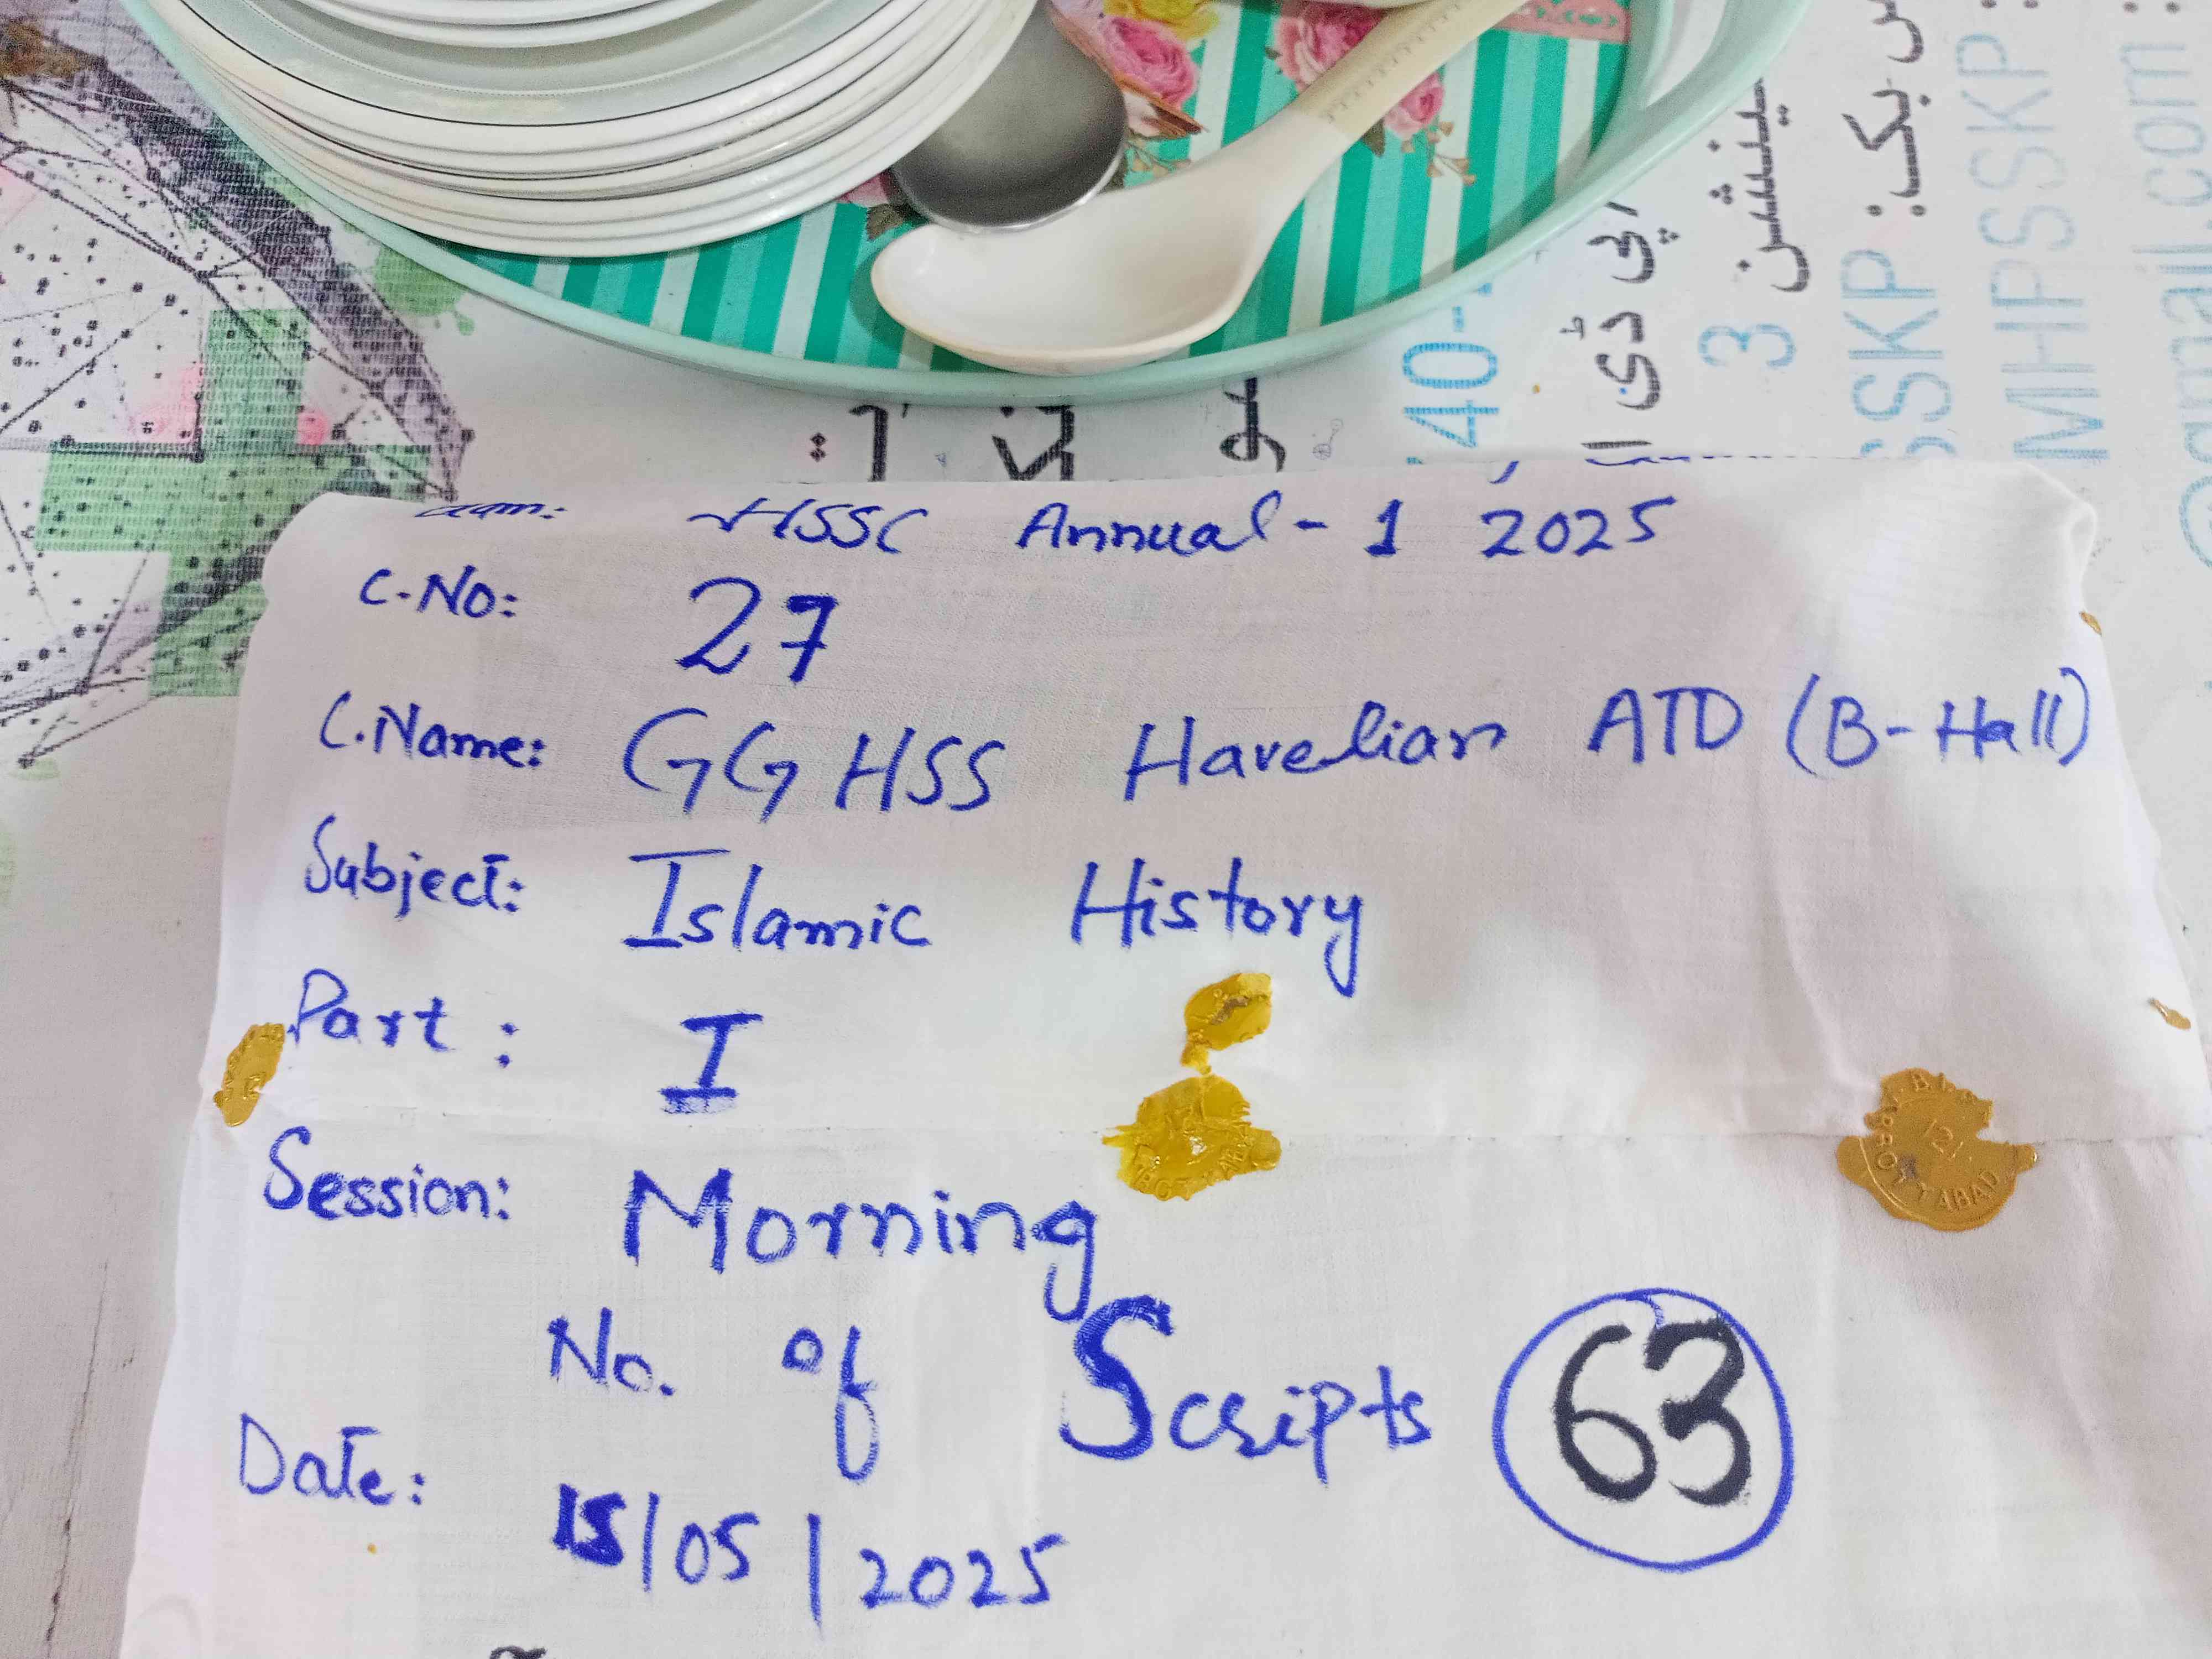 بک:
ینشن 3
پی ڈی ا
40-
SSKP
MHPSSKP :
@gmail.com :
HSSC Annual - 1 2025
C.No: 27
C.Name: GGHSS Havelian ATD (B-Hall)
Subject: Islamic History
Part: I
Session: Morning
No. of Scripts 63
Date: 15/05/2025
B.I.S
121
ABBOTTABAD